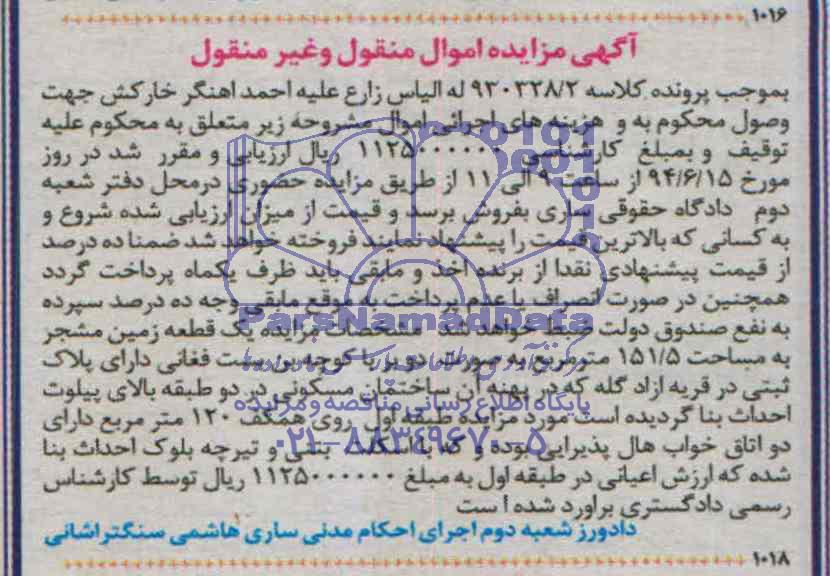 ۱۰۱۶
آگهی مزایده اموال منقول وغیر منقول
بموجب پرونده کلاسه ۹۳۰۳۲۸/۲ له الیاس زارع علیه احمد اهنگر خارکش جهت
وصول محکوم به و هزینه های اجرائی اموال مشروحه زیر متعلق به محکوم علیه
توقیف و بمبلغ کارشناسی ۱۱۲۵۰۰۰۰۰۰ ریال ارزیابی و مقرر شد در روز
مورخ ۹۴/۶/۱۵ از ساعت ۹ الی ۱۱ از طریق مزایده حضوری درمحل دفتر شعبه
دوم دادگاه حقوقی ساری بفروش برسد و قیمت از میزان ارزیابی شده شروع و
به کسانی که بالاترین قیمت را پیشنهاد نمایند فروخته خواهد شد ضمنا ده درصد
از قیمت پیشنهادی نقدا از برنده اخذ و مابقی باید ظرف یکماه پرداخت گردد
همچنین در صورت انصراف یا عدم پرداخت به موقع مابقی وجه ده درصد سپرده
به نفع صندوق دولت ضبط خواهد شد مشخصات مزایده یک قطعه زمین مشجر
به مساحت ۱۵۱/۵ مترمربع به صورت دو بر با کوچه بن بست فغانی دارای پلاک
ثبتی در قریه ازاد گله که در پهنه آن ساختمان مسکونی در دو طبقه بالای پیلوت
احداث بنا گردیده است مورد مزایده طبقه اول روی همکف ۱۲۰ متر مربع دارای
دو اتاق خواب هال پذیرایی بوده و که با اسکلت بتنی و تیرچه بلوک احداث بنا
شده که ارزش اعیانی در طبقه اول به مبلغ ۱۱۲۵۰۰۰۰۰۰ ریال توسط کارشناس
رسمی دادگستری براورد شده است
دادورز شعبه دوم اجرای احکام مدنی ساری هاشمی سنگتراشانی
۱۰۱۸
ParsNamadData
پایگاه اطلاع رسانی مناقصه و مزایده
۰۲۱-۸۸۳۴۹۶۷۰-۵